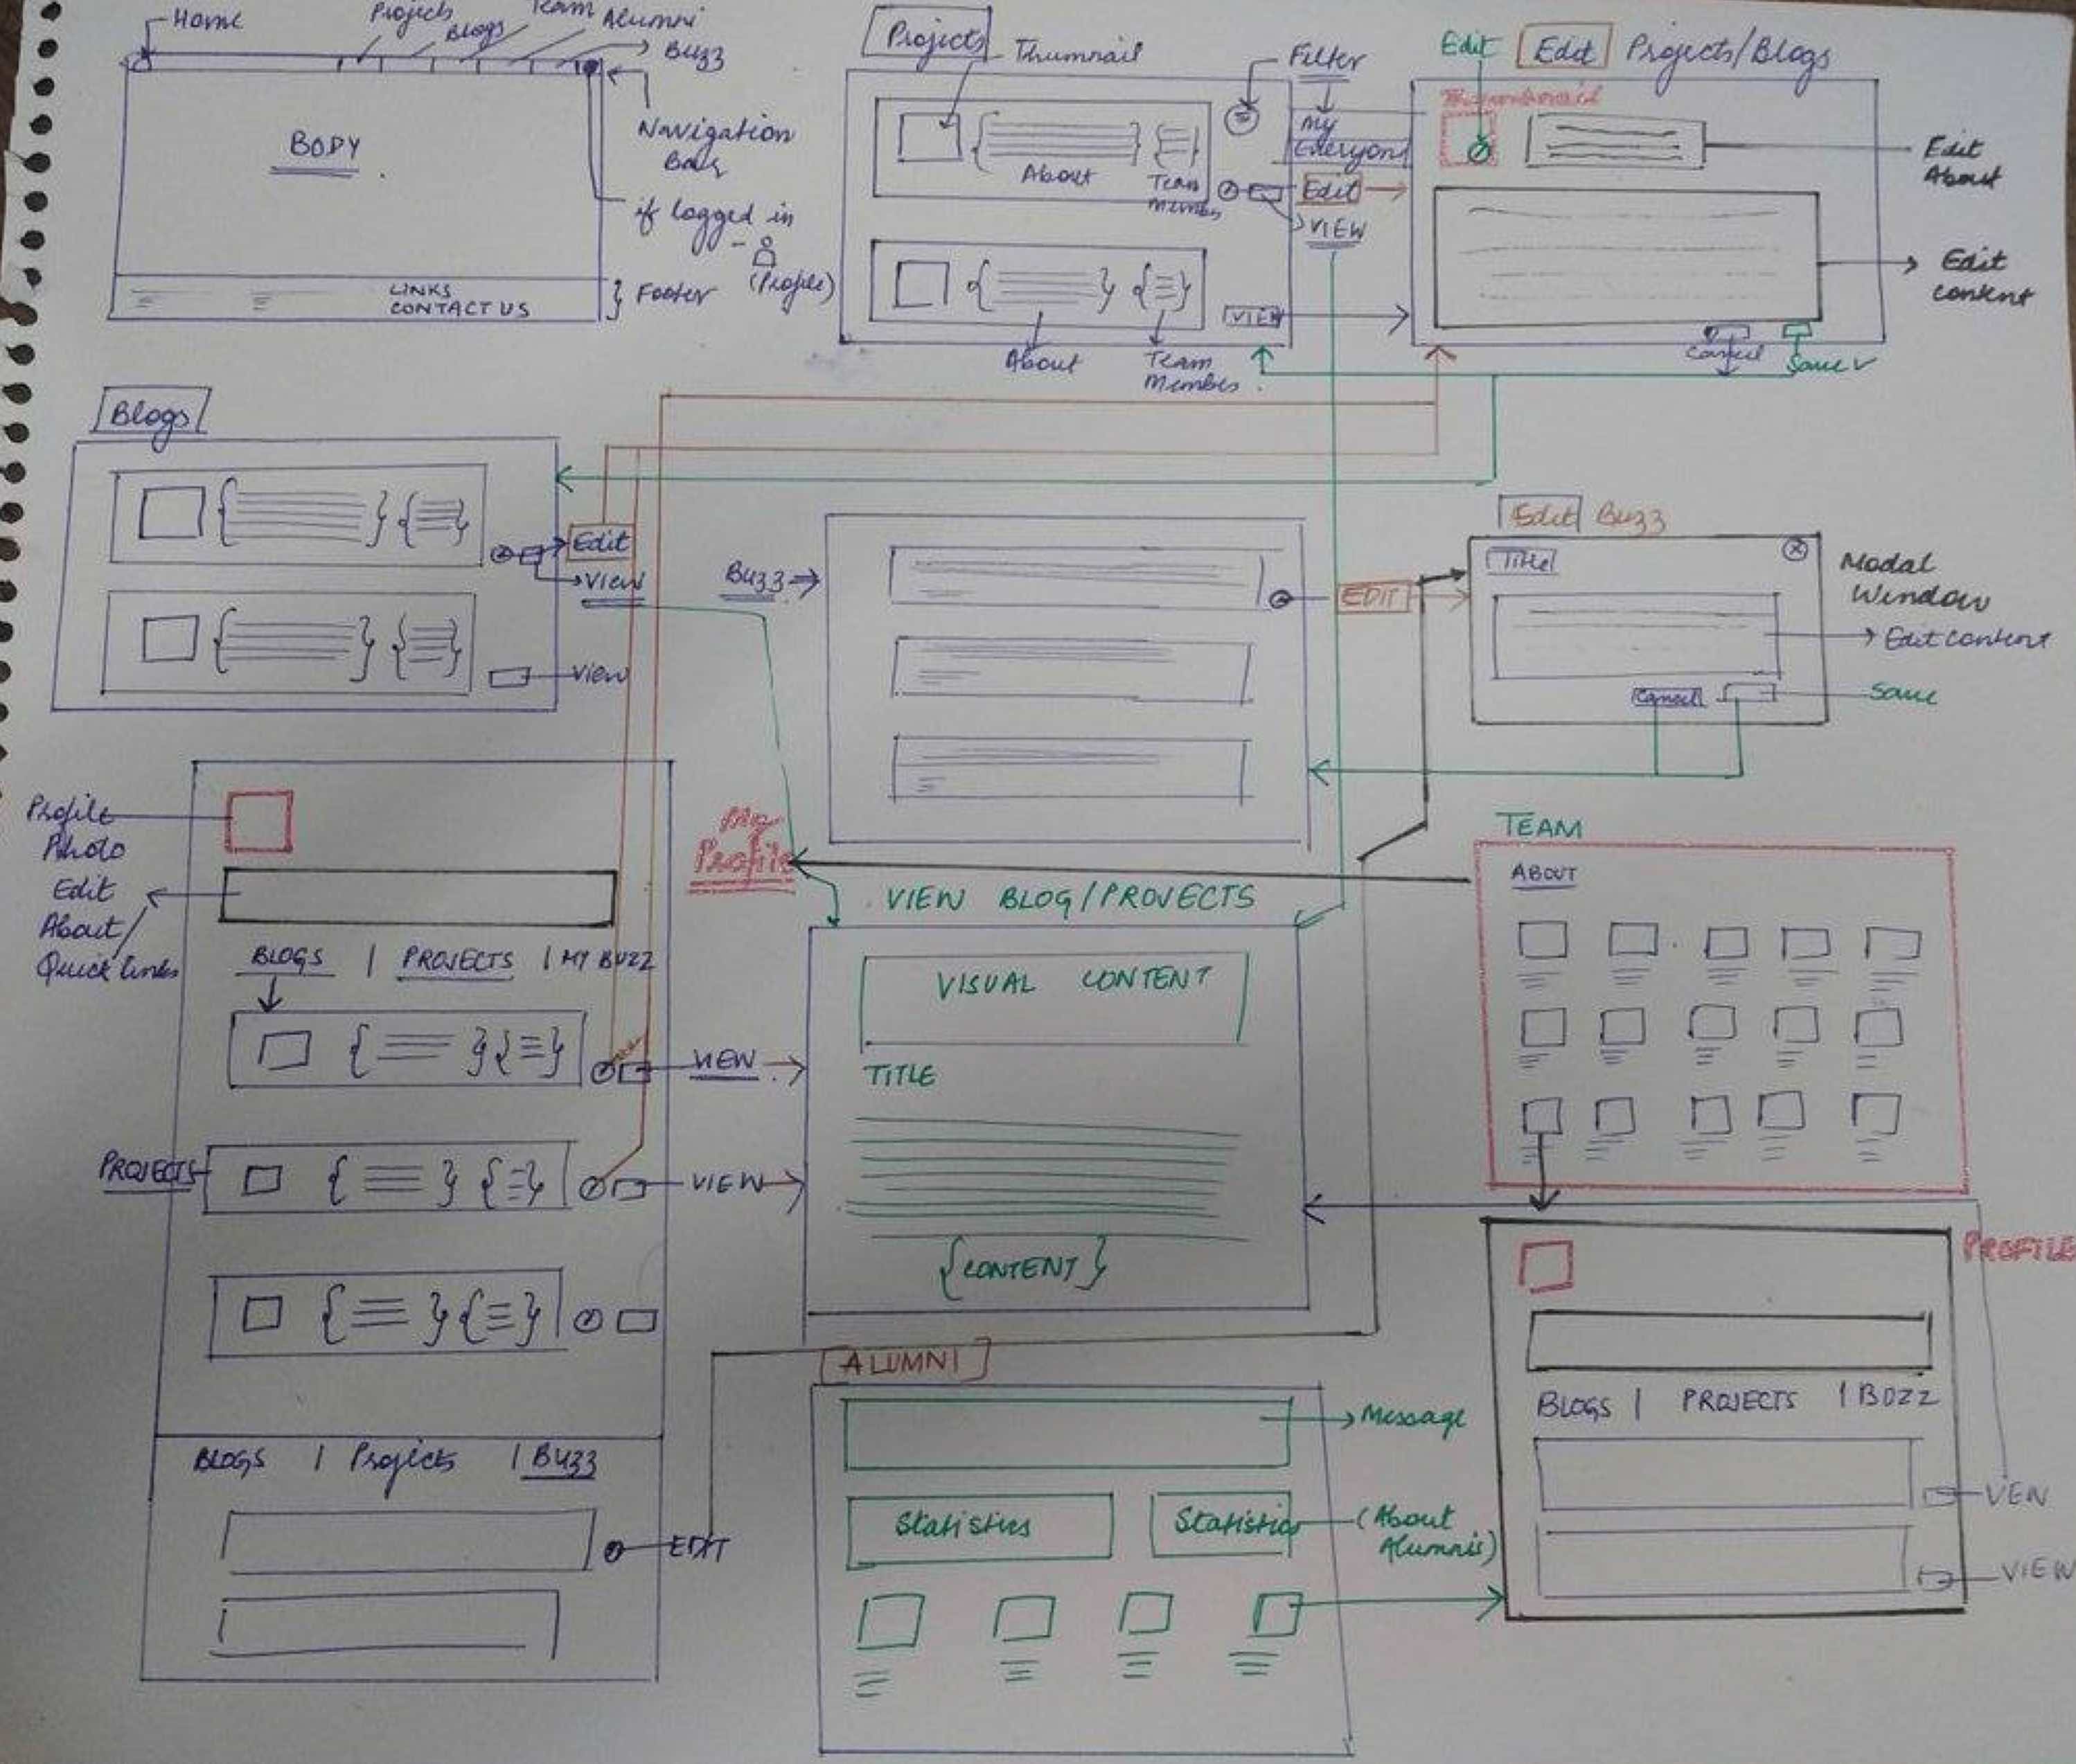 Home
Projects
Blogs
Team
Alumni
Buzz
BODY
Navigation
Bar
if logged in
(Profile)
LINKS
CONTACT US
Footer
Projects
Thumnail
About
Team
Membes
About
Team
Membes
Filter
My
Everyone
Edit
VIEW
VIEW
Edit
Edit Projects/Blogs
Edit
About
Edit
content
Cancel
Save
Blogs
Edit
View
View
Buzz
EDIT
Edit Buzz
Title
Modal
Window
Edit content
Cancel
Save
Profile
Photo
Edit
About
Quick links
BLOGS | PROJECTS | MY BUZZ
VIEW
PROJECTS
VIEW
BLOGS | Projects | Buzz
EDIT
My
Profile
VIEW BLOG/PROJECTS
VISUAL CONTENT
TITLE
{CONTENT}
TEAM
ABOUT
PROFILE
BLOGS | PROJECTS | BUZZ
VIEW
VIEW
ALUMNI
Message
Statistics
Statistics
(About
Alumnis)